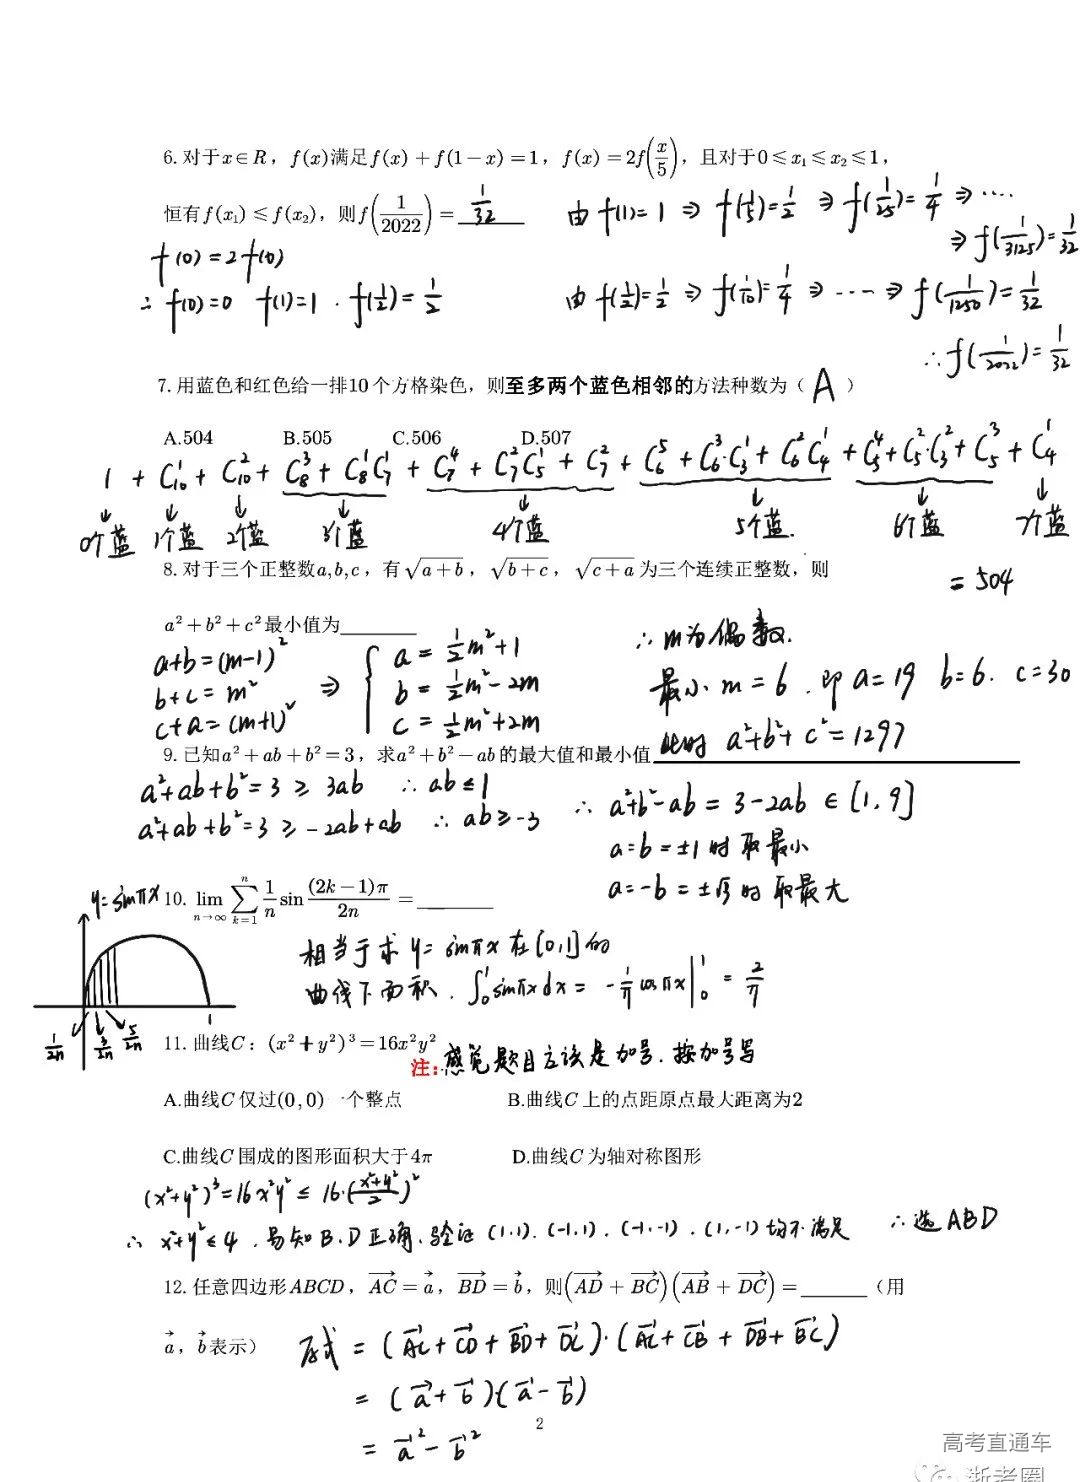 6.对于x∈R，f(x)满足f(x)+f(1-x)=1，f(x)=2f(x/5)，且对于0≤x₁≤x₂≤1，
恒有f(x₁)≤f(x₂)，则f(1/2022)=1/32
由f(1)=1⇒f(1/5)=1/2⇒f(1/25)=1/4⇒····
⇒f(1/3125)=1/32
f(0)=2f(0)
∴f(0)=0 f(1)=1.f(1/2)=1/2
由f(1/2)=1/2⇒f(1/10)=1/4⇒····⇒f(1/1250)=1/32
∴f(1/2022)=1/32
7.用蓝色和红色给一排10个方格染色，则至多两个蓝色相邻的方法种数为（A）
A.504 B.505 C.506 D.507
1+C₁₀¹+C₁₀²+C₈³+C₈¹C₇¹+C₇⁴+C₇²C₅¹+C₇²+C₆⁵+C₆³·C₃¹+C₆²C₄¹+C₅⁴+C₅²·C₃²+C₅³+C₄¹
0个蓝 1个蓝 2个蓝 3个蓝 4个蓝 5个蓝. 6个蓝 7个蓝
=504
8.对于三个正整数a,b,c，有√(a+b)，√(b+c)，√(c+a)为三个连续正整数，则
a²+b²+c²最小值为
a+b=(m-1)²
b+c=m²
c+a=(m+1)²
⇒
a=1/2m²+1
b=1/2m²-2m
c=1/2m²+2m
∴m为偶数.
最小m=6.即a=19 b=6.c=30
此时a²+b²+c²=1297
9.已知a²+ab+b²=3，求a²+b²-ab的最大值和最小值
a²+ab+b²=3≥3ab ∴ab≤1
a²+ab+b²=3≥-2ab+ab ∴ab≥-3
∴a²+b²-ab=3-2ab∈[1,9]
a=b=±1时取最小
a=-b=±√3时取最大
10. lim n→∞ ∑ k=1 n 1/n sin (2k-1)π/2n =
y=sinπx
1/2n 3/2n 5/2n 1
相当于求y=sinπx在[0,1]的
曲线下面积.∫₀¹sinπxdx=-1/π cosπx|₀¹=2/π
11.曲线C：(x²+y²)³=16x²y²
注：感觉题目应该是加号.按加号写
A.曲线C仅过(0,0)一个整点 B.曲线C上的点距原点最大距离为2
C.曲线C围成的图形面积大于4π D.曲线C为轴对称图形
(x²+y²)³=16x²y²≤16·((x²+y²)/2)²
∴x²+y²≤4.易知B、D正确、验证(1,1).(-1,1).(-1,-1).(1,-1)均不满足 ∴选ABD
12.任意四边形ABCD，AC→=a→，BD→=b→，则(AD→+BC→)(AB→+DC→)=（用
a→，b→表示）
原式=(AC→+CD→+BD→+DC→)·(AC→+CB→+DB→+BC→)
=(a→+b→)(a→-b→)
=a→²-b→²
2
高考直通车
浙考圈